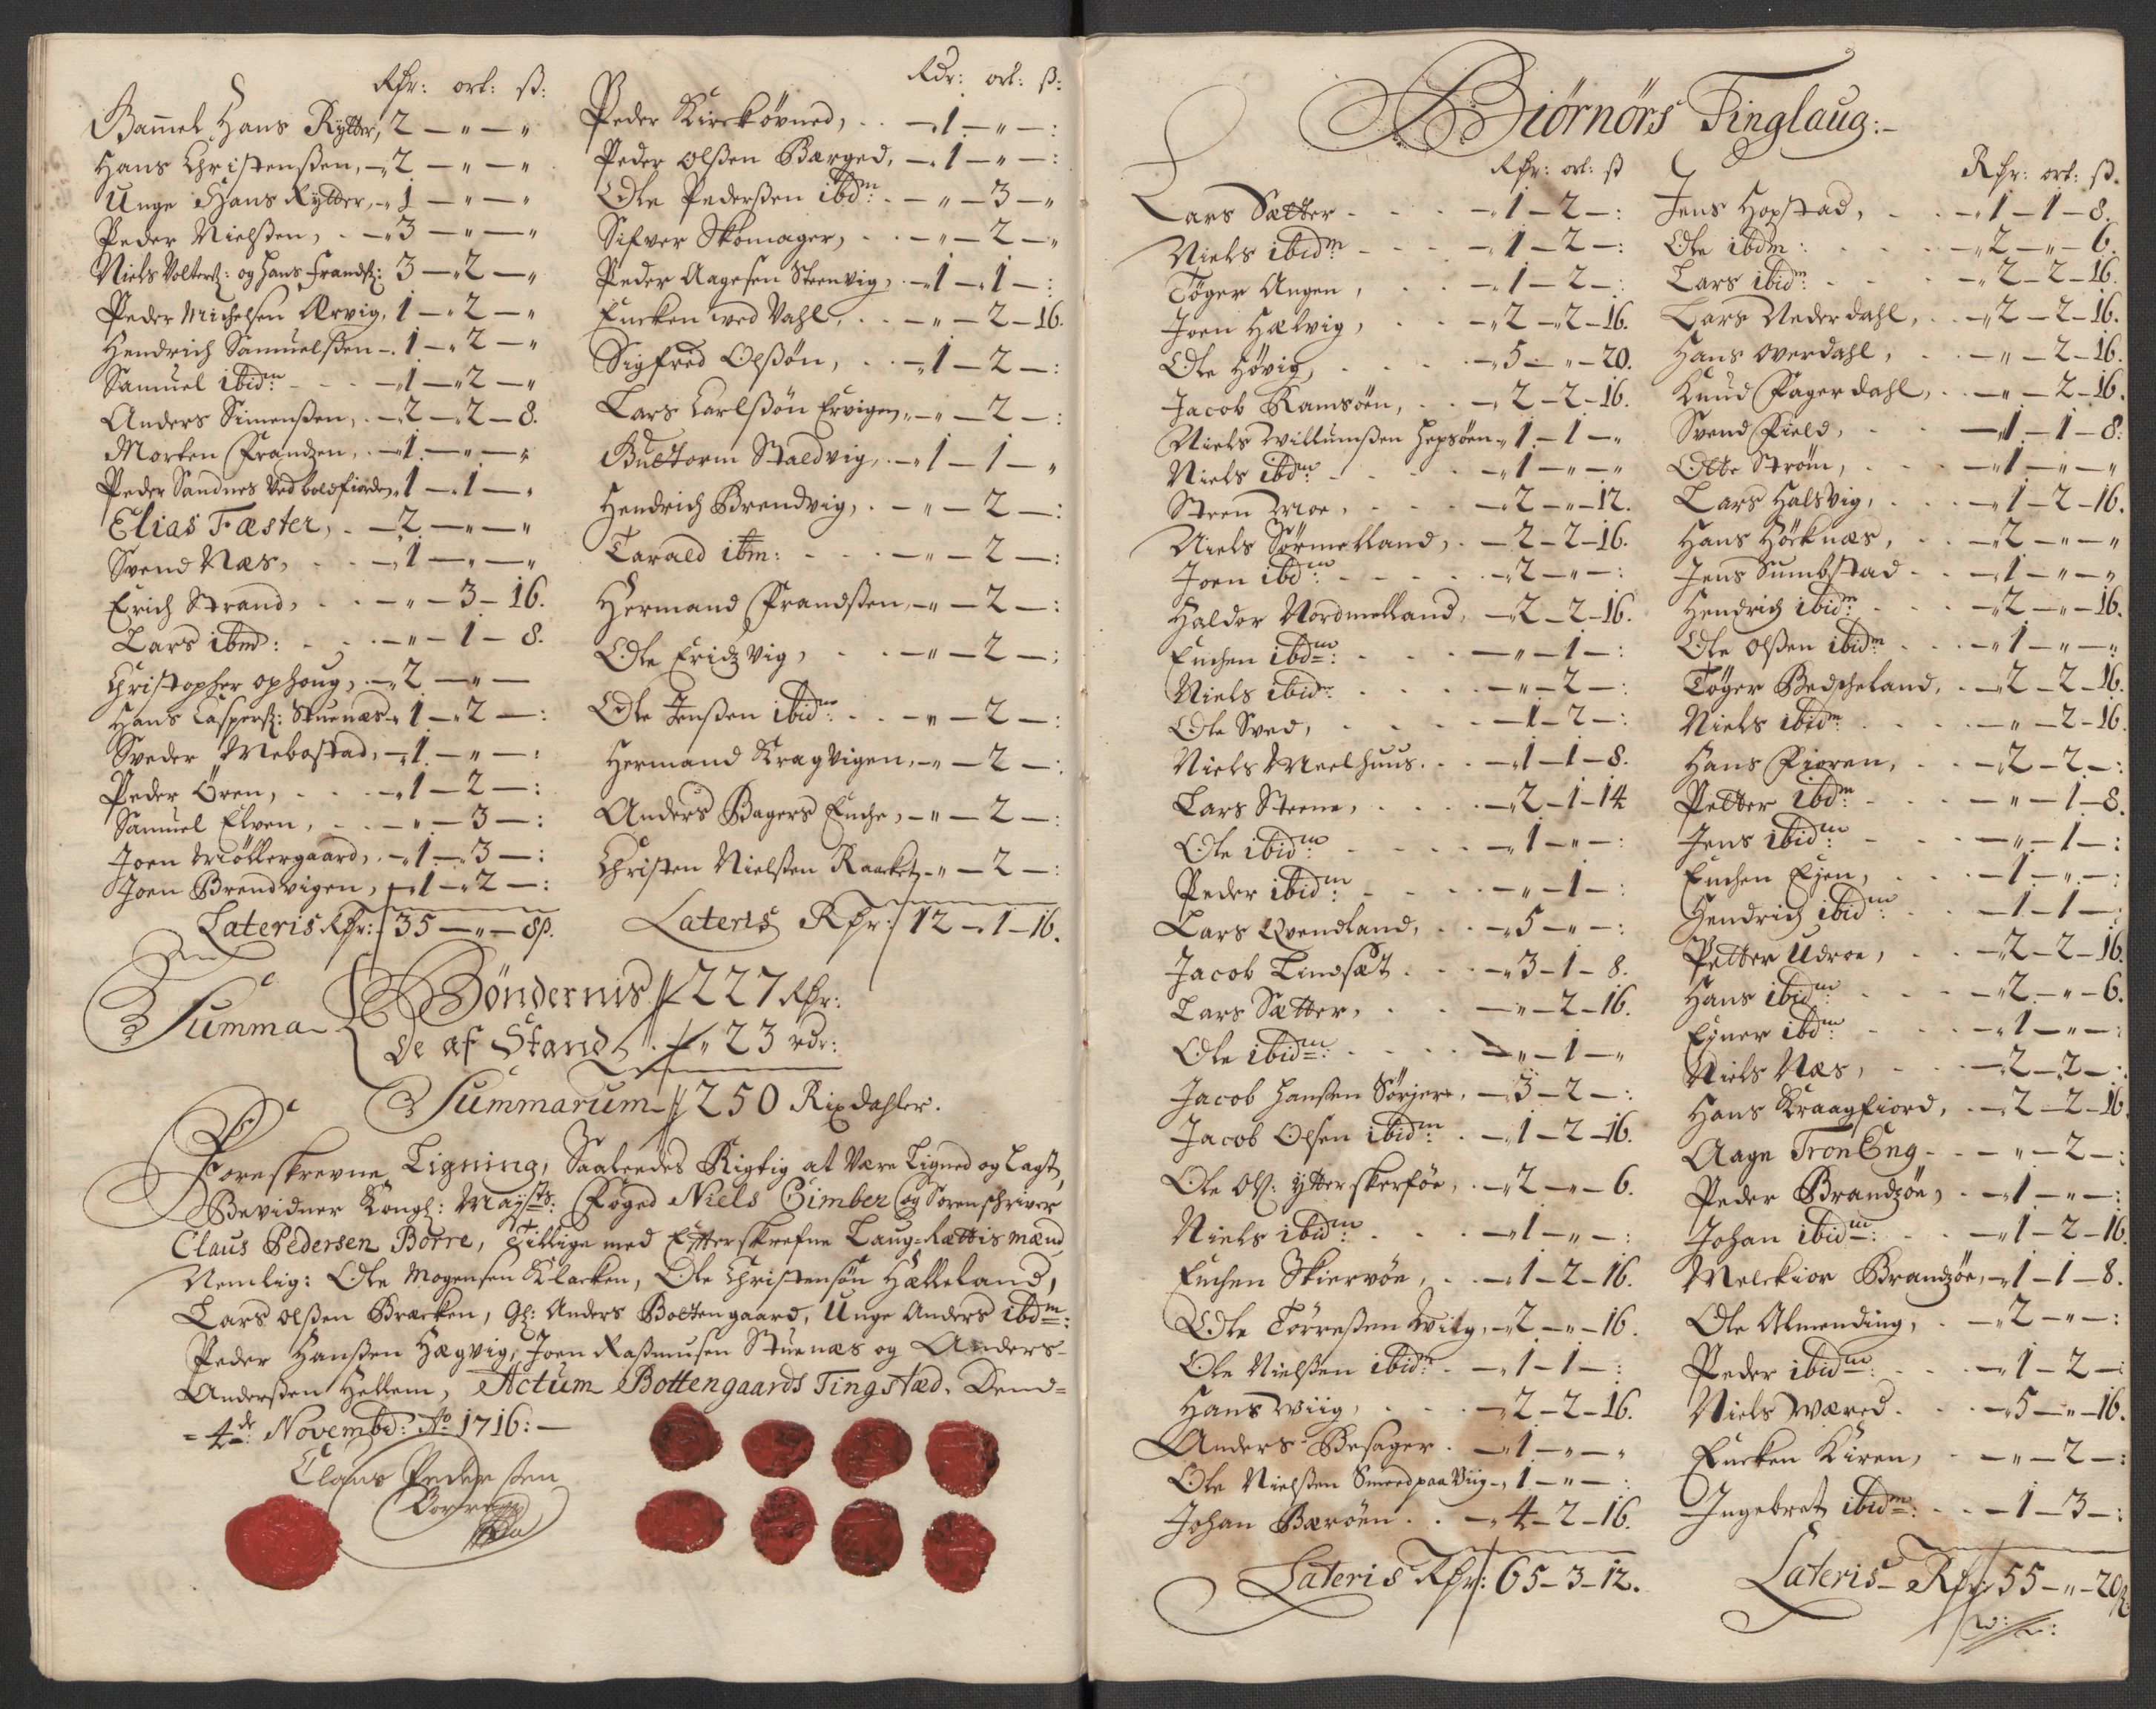 Rdr: ort: ß:
Gammel Hans Rytter, 2 — " — "
Hans Christenßen, — 2 — " — "
Unge Hans Rytter, — 1 — " — "
Peder Nielßen, — 3 — " — "
Niels Volterß: og Hans Frandß: 3 — 2 — "
Peder Michelsen Ærvig, 1 — 2 — "
Hendrich Samuelßen — 1 — 2 — "
Samuel ibidm — 1 — 2 — "
Anders Simenßen, — 2 — 2 — 8.
Morten Frandzen, — 1 — " — "
Peder Sandnes ved boldfiorden, 1 — 1 — "
Elias Fæster, — 2 — " — "
Svend Næs, — 1 — " — "
Erich Strand, — " — 3 — 16.
Lars ibm: — " — 1 — 8.
Christopher ophoug, — 2 — " —
Hans Casperß: Stuenæs — 1 — 2 — :
Sveder Mebostad, — 1 — " — :
Peder Ören, — 1 — 2 — :
Samuel Elven, — " — 3 — :
Joen Møllergaard, — 1 — 3 — :
Joen Brendvigen, — 1 — 2 — :
Lateris Rdr: 35 — " — 8ß.
Rdr: ort: ß:
Peder Kirckøvned, — 1 — " — :
Peder Olßen Berged, — 1 — " — :
Ole Pederßen ibdm: — " — 3 — "
Sifver Skomager, — " — 2 — "
Peder Aagesen Steenvig, — 1 — 1 — :
Encken ved Vahl, — " — 2 — 16.
Sigfred Olßøn, — 1 — 2 — :
Lars Carlßøn Ervigen, — " — 2 — :
Guttorm Staldvig, — 1 — 1 — "
Hendrich Brendvig, — " — 2 — :
Tarald ibm: — " — 2 — :
Hermand Frandßen, — " — 2 — :
Ole Eridzvig, — " — 2 — :
Ole Jenßen ibidm: — " — 2 — :
Hermand Kragvigen, — " — 2 — :
Anders Bagers Enche, — " — 2 — :
Christen Nielßen Raacket, — " — 2 — :
Lateris Rdr: 12 — 1 — 16.
Summa
Böndernis 227 Rdr:
De af Stand 23 rdr:
Summarum 250 Rixdahler.
Foreskrevne Ligning, Saaledes Rigtig at være Ligned og Lagt,
Bevidner Kongl: Mayts: Foged Niels Gimber og Sorenschriver
Claus Pedersen Borre, tillige med Efterskrefne Laug-Rættis mænd
Nemlig: Ole Mogensen Klacken, Ole Christensøn Hælleland,
Lars Olßen Bræcken, Gl: Anders Bottengaard, Unge Anders ibdm:
Peder Hanßen Hægvig, Joen Raßmusen Stuenæs og Anders
Anderßen Hellem, Actum Bottengaards Tingstæd. Dend=
= 4de Novembr: Ao 1716: —
Claus Pedersen
Borre
Biörnörs Tinglaug: —
Rdr: ort: ß
Lars Sætter — 1 — 2 — :
Niels ibidm — 1 — 2 — :
Tøger Angen, — 1 — 2 — :
Joen Hælvig, — 2 — 2 — 16.
Ole Høvig, — 5 — " — 20.
Jacob Ramsöen, — 2 — 2 — 16.
Niels Willumßen Hepsøen — 1 — 1 — "
Niels ibdm: — 1 — " — "
Steen Moe, — 2 — " — 12.
Niels Sørmelland, — 2 — 2 — 16.
Joen ibdm: — 2 — " — :
Haldor Nordmelland, — 2 — 2 — 16.
Enchen ibdm: — " — 1 — :
Niels ibid: — " — 2 — :
Ole Sved, — 1 — 2 — :
Niels Meelhuus — 1 — 1 — 8.
Lars Steene, — 2 — 1 — 14
Ole ibidm — 1 — " — :
Peder ibidm: — " — 1 — :
Lars Qvendland, — 5 — " — :
Jacob Lindsæt — 3 — 1 — 8.
Lars Sætter, — " — 2 — 16.
Ole ibidm: — " — 1 — "
Jacob Hansen Sørjer, — 3 — 2 — :
Jacob Olsen ibidm: — 1 — 2 — 16.
Ole Olß: Ytterskerføe, — 2 — " — 6.
Niels ibidm: — 1 — " — :
Enchen Skiervøe, — 1 — 2 — 16.
Ole Tørreßen Wiig, — 2 — " — 16.
Ole Nielßen ibidm — 1 — 1 — :
Hans Wiig, — 2 — 2 — 16.
Anders Besager — 1 — " — "
Ole Nielßen Smed paa Viig — 1 — " — :
Johan Bærøen — 4 — 2 — 16.
Lateris Rdr: 65 — 3 — 12.
Rdr: ort: ß.
Jens Hopstad, — 1 — 1 — 8.
Ole ibdm: — 2 — " — 6.
Lars ibidm: — 2 — 2 — 16.
Lars Nederdahl, — 2 — 2 — 16.
Hans Overdahl, — " — 2 — 16.
Knud Fagerdahl, — " — 2 — 16.
Svend Field, — 1 — 1 — 8:
Otte Strøm, — 1 — " — "
Lars Halsvig, — 1 — 2 — 16.
Hans Höcknæs, — 2 — " — "
Jens Sumbstad — 1 — " — "
Hendrich ibidm: — 2 — " — 16.
Ole Olßen ibidm — 1 — " — "
Tøger Bedscheland, — 2 — 2 — 16.
Niels ibidm: — " — 2 — 16
Hans Fioren, — 2 — 2 — :
Petter ibdm — " — 1 — 8.
Jens ibidm: — " — 1 — :
Enchen Eyen, — 1 — " — :
Hendrich ibidm: — 1 — 1 — :
Petter Udroe, — 2 — 2 — 16.
Hans ibidm: — 2 — " — 6.
Eyner ibdm — 1 — " — :
Niels Næs, — 2 — 2 — :
Hans Kraagfiord, — 2 — 2 — 16
Aage TronEng — " — 2 — :
Peder Brandzöe, — 1 — " — :
Johan ibidm: — 1 — 2 — 16.
Melckior Brandzöe, — 1 — 1 — 8.
Ole Almending, — 2 — " — :
Peder ibidm: — 1 — 2 — :
Niels Wæred — 5 — " — 16.
Encken Kiren, — " — 2 — :
Ingebret ibidm: — 1 — 3 — :
Lateris Rdr 55 — " — 20ß